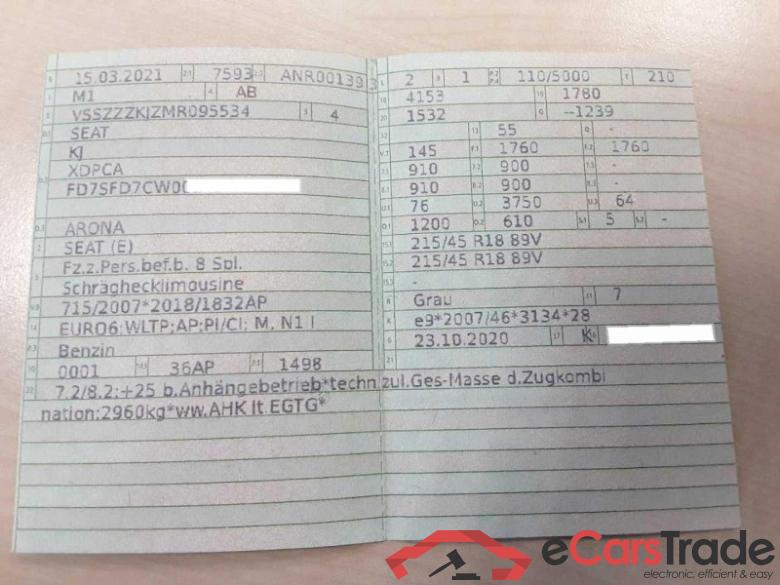 B 15.03.2021 2.1 7593 2.2 ANR001393
J M1 4 AB
E VSSZZZKJZMR095534 3 4
D.1 SEAT
D.2 KJ
XDPCA
FD7SFD7CW0
D.3 ARONA
2 SEAT (E)
5 Fz.z.Pers.bef.b. 8 Spl.
Schräghecklimousine
V.9 715/2007*2018/1832AP
14 EURO6;WLTP;AP;PI/CI; M, N1 I
P.3 Benzin
10 0001 14.1 36AP P.1 1498
22 7.2/8.2:+25 b.Anhängebetrieb*techn.zul.Ges-Masse d.Zugkombi
nation:2960kg*ww.AHK lt.EGTG*
L 2 9 1 P.2 P.4 110/5000 T 210
18 4153 19 1780
20 1532 G --1239
13 55 Q -
V.7 145 F.1 1760 F.2 1760
7.1 910 7.2 900 7.3 -
8.1 910 8.2 900 8.3 -
U.1 76 U.2 3750 U.3 64
O.1 1200 O.2 610 S.1 5 S.2 -
15.1 215/45 R18 89V
15.2 215/45 R18 89V
15.3 -
R Grau 11 7
K e9*2007/46*3134*28
6 23.10.2020 17 K 16
21
eCarsTrade
electronic, efficient & easy